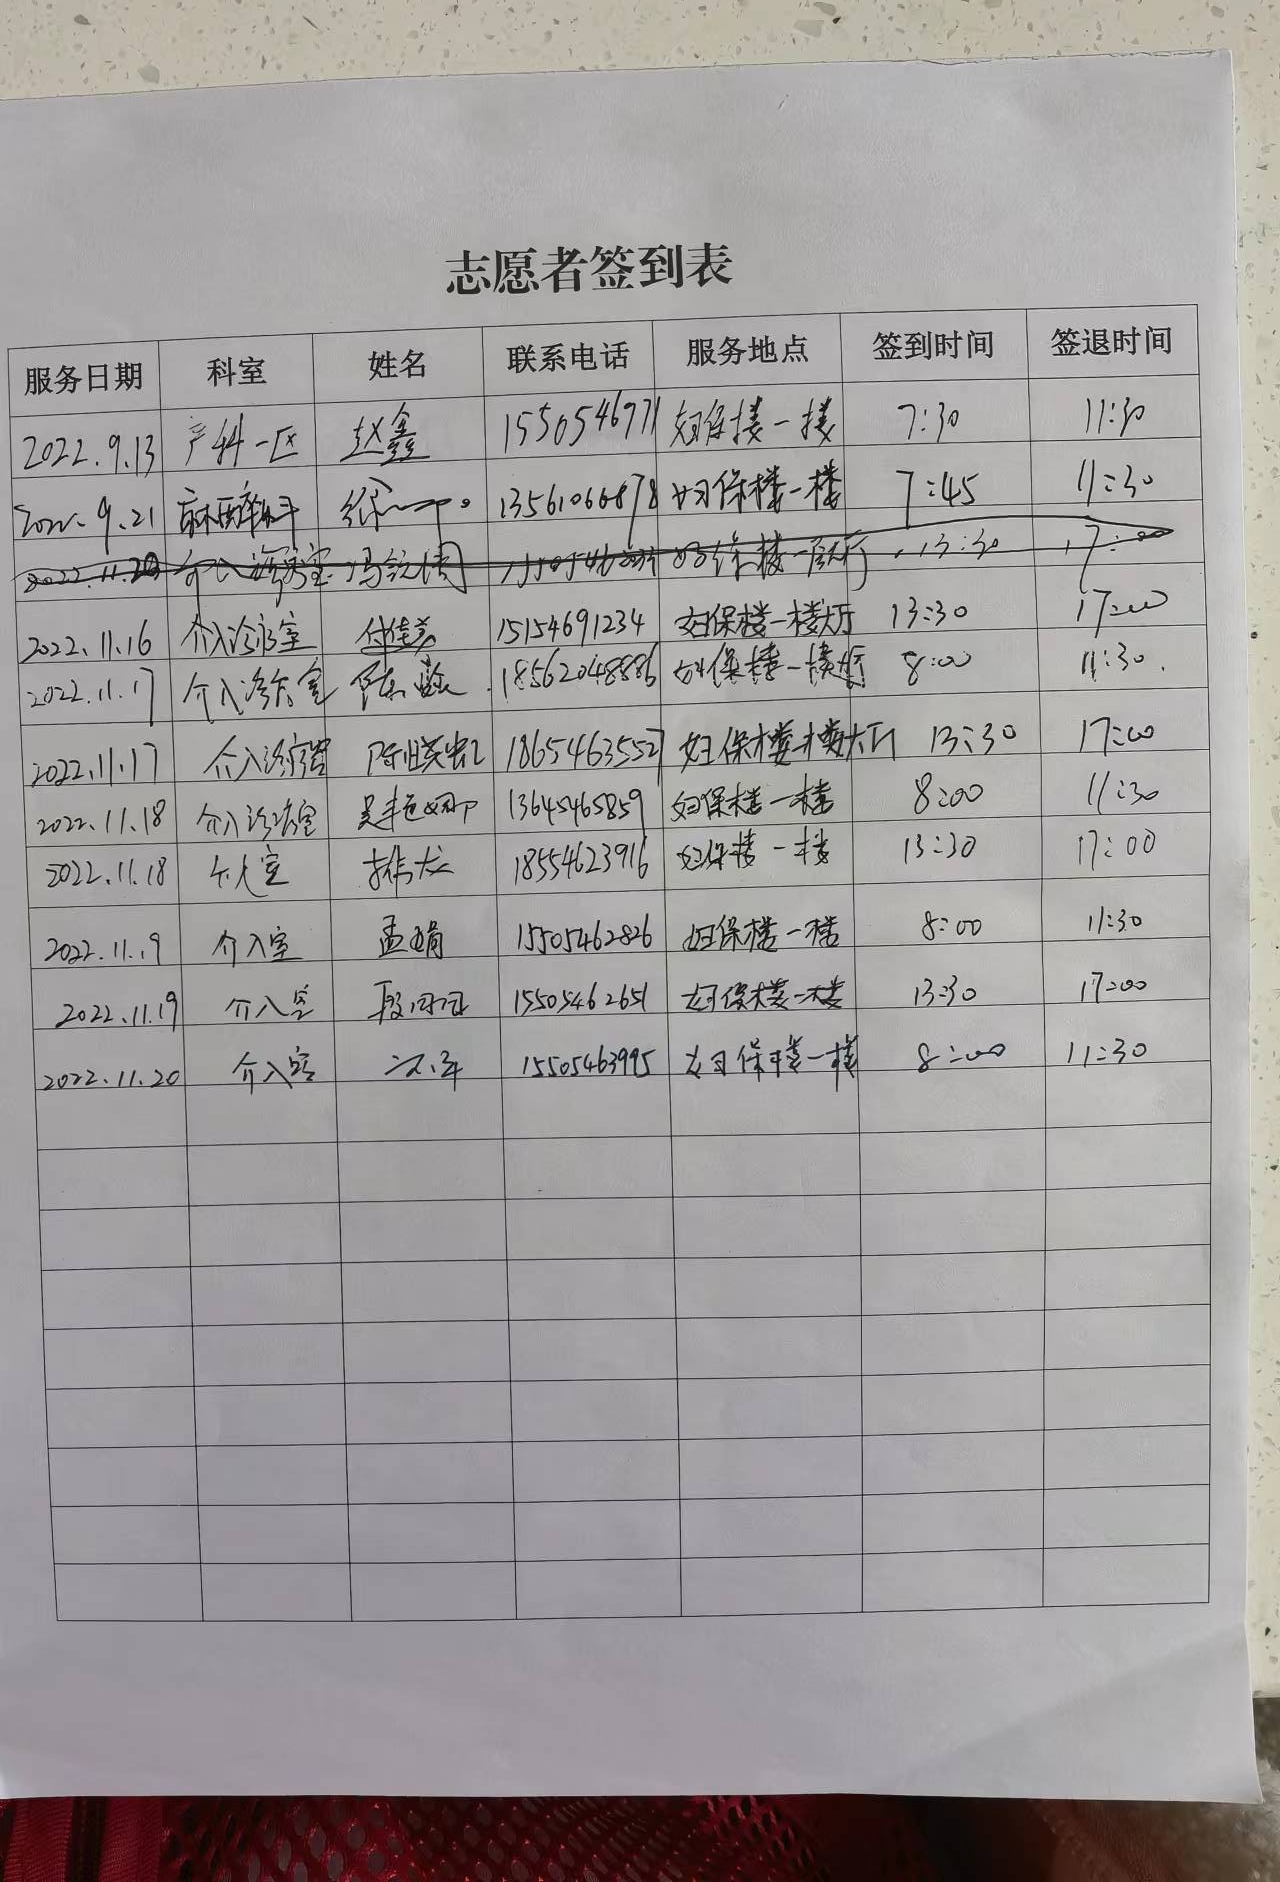 志愿者签到表
服务日期 科室 姓名 联系电话 服务地点 签到时间 签退时间
2022.9.13 产科一区 赵鑫 1550546971 妇保楼一楼 7:30 11:30
2022.9.21 麻醉科 徐 13561066878 妇保楼一楼 7:45 11:30
2022.11.20 介入诊疗室 妇保楼一楼大厅 13:30 17:00
2022.11.16 介入诊疗室 15154691234 妇保楼一楼大厅 13:30 17:00
2022.11.17 介入诊疗室 18562048886 妇保楼一楼大厅 8:00 11:30.
2022.11.17 介入诊疗室 陈晓 18654635527 妇保楼一楼大厅 13:30 17:00
2022.11.18 介入诊疗室 吴艳娜 13645465859 妇保楼一楼 8:00 11:30
2022.11.18 介入室 18554623916 妇保楼一楼 13:30 17:00
2022.11.19 介入室 孟娟 15505462826 妇保楼一楼 8:00 11:30
2022.11.19 介入室 15505462651 妇保楼一楼 13:30 17:00
2022.11.20 介入室 15505463995 妇保楼一楼 8:00 11:30